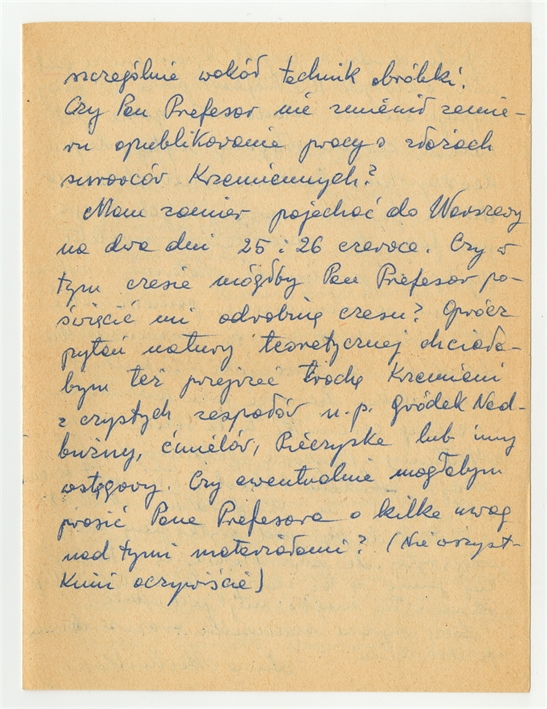 szczególnie wokół technik obróbki.
Czy Pan Profesor nie zmienił zamie-
ru opublikowania pracy o złożach
surowców Krzemiennych?
Mam zamiar pojechać do Warszawy
na dwa dni 25 i 26 czerwca. Czy w
tym czasie mógłby Pan Profesor po-
święcić mi odrobinę czasu? Oprócz
pytań natury teoretycznej chciała-
bym też przejrzeć trochę Krzemieni
z czystych zespołów n.p. Gródek Nad-
bużny, Ćmielów, Pieczyska lub inny
wstęgowy. Czy ewentualnie mogłabym
prosić Pana Profesora o kilka uwag
nad tymi materiałami? (Nie wszyst-
Kimi oczywiście)